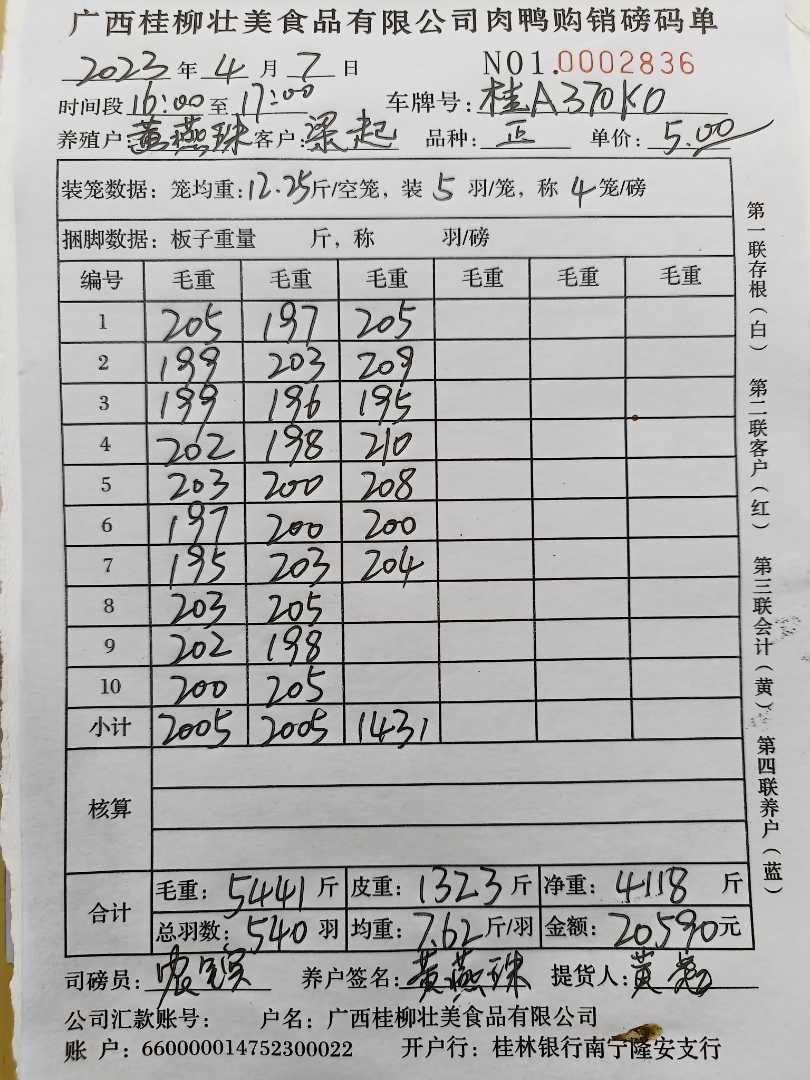 广西桂柳壮美食品有限公司肉鸭购销磅码单
2023年4月7日 NO1.0002836
时间段16:00至17:00 车牌号:桂A370K0
养殖户:黄燕珠 客户:梁起 品种:正 单价:5.00
装笼数据:笼均重:12.25斤/空笼,装5羽/笼,称4笼/磅
捆脚数据:板子重量 斤,称 羽/磅
编号 毛重 毛重 毛重 毛重 毛重 毛重
1 205 197 205
2 199 203 209
3 199 196 195
4 202 198 210
5 203 200 208
6 197 200 200
7 195 203 204
8 203 205
9 202 198
10 200 205
小计 2005 2005 1431
核算
合计 毛重:5441斤 皮重:1323斤 净重:4118斤
总羽数:540羽 均重:7.62斤/羽 金额:20590元
司磅员: 养户签名:黄燕珠 提货人:黄
公司汇款账号: 户名:广西桂柳壮美食品有限公司
账 户:660000014752300022 开户行:桂林银行南宁隆安支行
第一联存根(白) 第二联客户(红) 第三联会计(黄) 第四联养户(蓝)